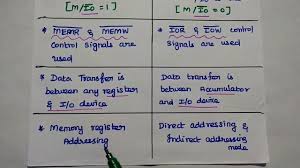 [M/I̅O̅ = 1]
[M/I̅O̅ = 0]
* M̅E̅M̅R̅ & M̅E̅M̅W̅
control signals
are used
I̅O̅R̅ & I̅O̅W̅
control signals are
used
* Data Transfer is
between any register
& I/O device
Data transfer is
between Accumulator
and I/O device
* Memory register
Addressing
Direct addressing &
Indirect addressing
mode